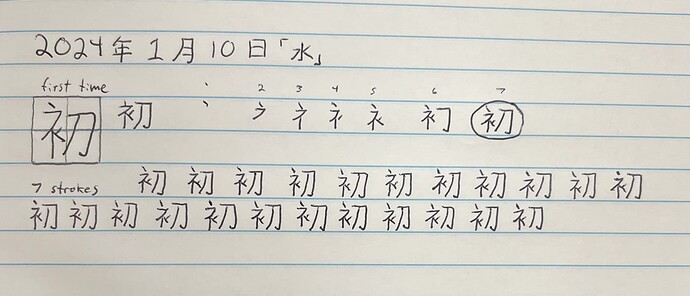 2024年1月10日「水」
first time 2 3 4 5 6 7
初 初 丶 ラ ネ 衤 初
7 strokes 初 初 初 初 初 初 初 初 初 初 初
初 初 初 初 初 初 初 初 初 初 初 初